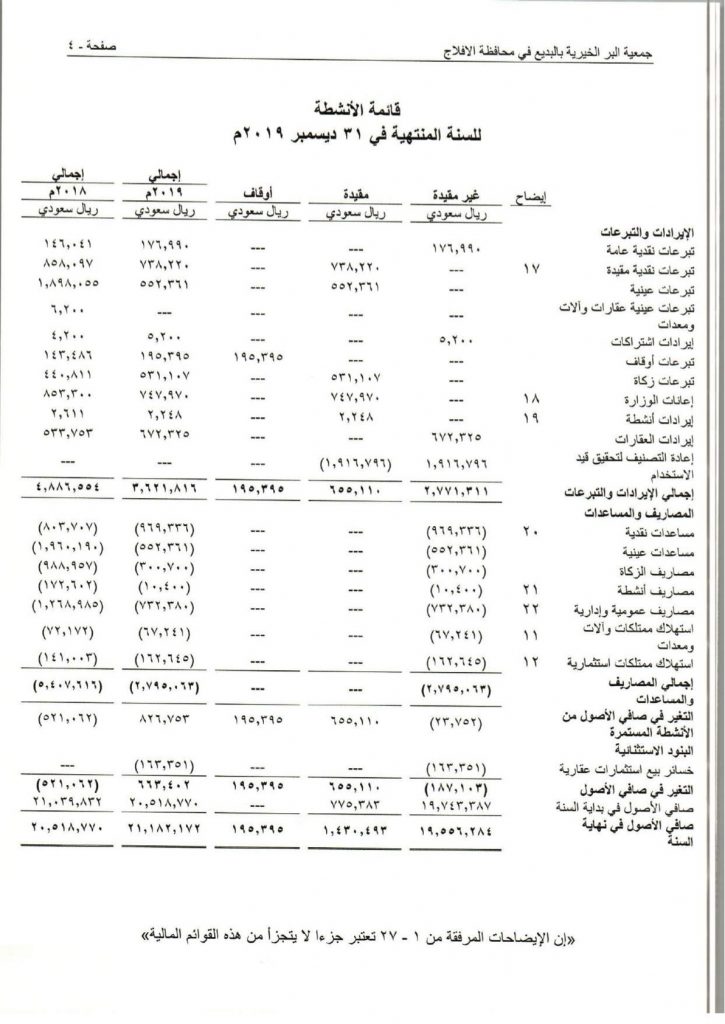 جمعية البر الخيرية بالبديع في محافظة الافلاج صفحة - ٤
قائمة الأنشطة
للسنة المنتهية في ٣١ ديسمبر ٢٠١٩م
إجمالي إجمالي
إيضاح غير مقيدة مقيدة أوقاف ٢٠١٩م ٢٠١٨م
ريال سعودي ريال سعودي ريال سعودي ريال سعودي ريال سعودي
الإيرادات والتبرعات
تبرعات نقدية عامة ١٧٦,٩٩٠ --- --- ١٧٦,٩٩٠ ١٤٦,٠٤١
تبرعات نقدية مقيدة ١٧ --- ٧٣٨,٢٢٠ --- ٧٣٨,٢٢٠ ٨٥٨,٠٩٧
تبرعات عينية --- ٥٥٢,٣٦١ --- ٥٥٢,٣٦١ ١,٨٩٨,٠٥٥
تبرعات عينية عقارات وآلات --- --- --- --- ٦,٢٠٠
ومعدات
إيرادات اشتراكات ٥,٢٠٠ --- --- ٥,٢٠٠ ٤,٢٠٠
تبرعات أوقاف --- --- ١٩٥,٣٩٥ ١٩٥,٣٩٥ ١٤٣,٤٨٦
تبرعات زكاة --- ٥٣١,١٠٧ --- ٥٣١,١٠٧ ٤٤٠,٨١١
إعانات الوزارة ١٨ --- ٧٤٧,٩٧٠ --- ٧٤٧,٩٧٠ ٨٥٣,٣٠٠
إيرادات أنشطة ١٩ --- ٢,٢٤٨ --- ٢,٢٤٨ ٢,٦١١
إيرادات العقارات ٦٧٢,٣٢٥ --- --- ٦٧٢,٣٢٥ ٥٣٣,٧٥٣
إعادة التصنيف لتحقيق قيد ١,٩١٦,٧٩٦ (١,٩١٦,٧٩٦) --- --- ---
الاستخدام
إجمالي الإيرادات والتبرعات ٢,٧٧١,٣١١ ٦٥٥,١١٠ ١٩٥,٣٩٥ ٣,٦٢١,٨١٦ ٤,٨٨٦,٥٥٤
المصاريف والمساعدات
مساعدات نقدية ٢٠ (٩٦٩,٣٣٦) --- --- (٩٦٩,٣٣٦) (٨٠٣,٧٠٧)
مساعدات عينية (٥٥٢,٣٦١) --- --- (٥٥٢,٣٦١) (١,٩٦٠,١٩٠)
مصاريف الزكاة (٣٠٠,٧٠٠) --- --- (٣٠٠,٧٠٠) (٩٨٨,٩٥٧)
مصاريف أنشطة ٢١ (١٠,٤٠٠) --- --- (١٠,٤٠٠) (١٧٢,٦٠٢)
مصاريف عمومية وإدارية ٢٢ (٧٣٢,٣٨٠) --- --- (٧٣٢,٣٨٠) (١,٢٦٨,٩٨٥)
استهلاك ممتلكات وآلات ١١ (٦٧,٢٤١) --- --- (٦٧,٢٤١) (٧٢,١٧٢)
ومعدات
استهلاك ممتلكات استثمارية ١٢ (١٦٢,٦٤٥) --- --- (١٦٢,٦٤٥) (١٤١,٠٠٣)
إجمالي المصاريف (٢,٧٩٥,٠٦٣) --- --- (٢,٧٩٥,٠٦٣) (٥,٤٠٧,٦١٦)
والمساعدات
التغير في صافي الأصول من (٢٣,٧٥٢) ٦٥٥,١١٠ ١٩٥,٣٩٥ ٨٢٦,٧٥٣ (٥٢١,٠٦٢)
الأنشطة المستمرة
البنود الاستثنائية
خسائر بيع استثمارات عقارية (١٦٣,٣٥١) (١٦٣,٣٥١) ---
التغير في صافي الأصول (١٨٧,١٠٣) ٦٥٥,١١٠ ١٩٥,٣٩٥ ٦٦٣,٤٠٢ (٥٢١,٠٦٢)
صافي الأصول في بداية السنة ١٩,٧٤٣,٣٨٧ ٧٧٥,٣٨٣ --- ٢٠,٥١٨,٧٧٠ ٢١,٠٣٩,٨٣٢
صافي الأصول في نهاية ١٩,٥٥٦,٢٨٤ ١,٤٣٠,٤٩٣ ١٩٥,٣٩٥ ٢١,١٨٢,١٧٢ ٢٠,٥١٨,٧٧٠
السنة
«إن الإيضاحات المرفقة من ١ - ٢٧ تعتبر جزءا لا يتجزأ من هذه القوائم المالية»